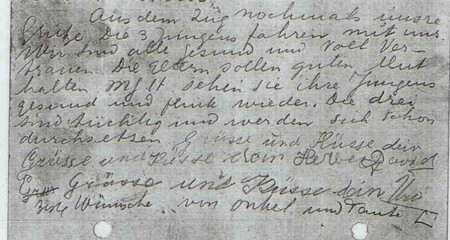 Aus dem Zug nochmals unsre
Grüße. Die 3 Jungens fahren mit uns.
Wir sind alle gesund und voll Ver-
trauen. Die Eltern sollen guten Mut
halten sehen sie ihre Jungens
gesund und flink wieder. Die drei
sind tüchtig und werden sich schon
durchsetzen. Grüsse und Küsse dein
Grüsse und Küsse dein
Grüsse und Küsse dein
Wünsche... von Onkel und Tante